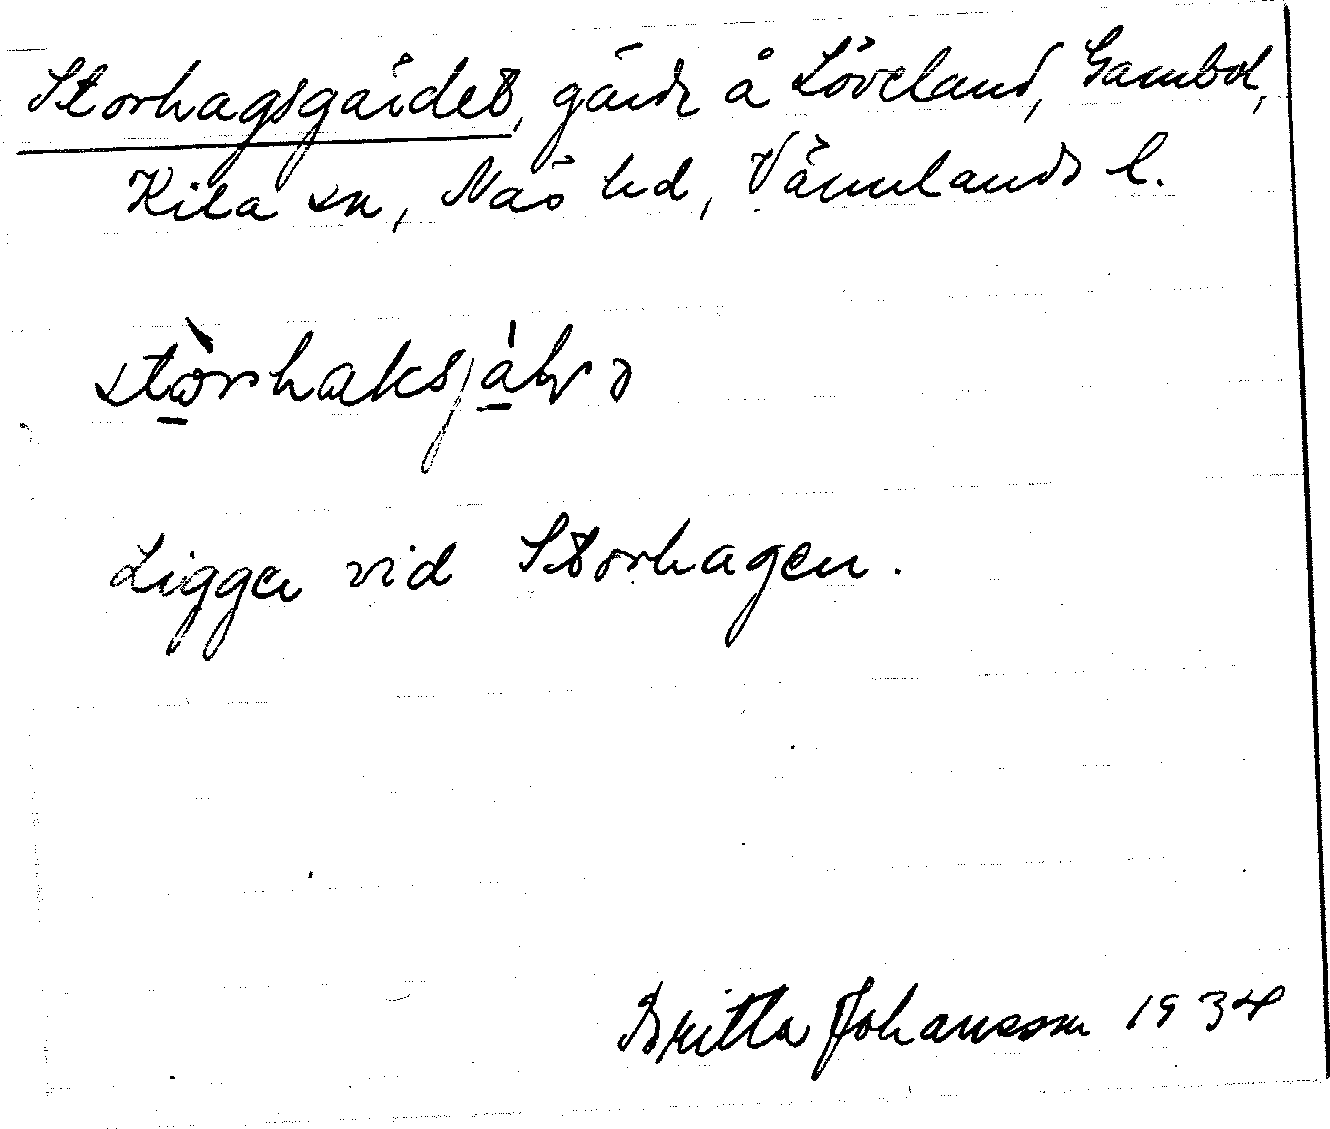 Storhagsgärdet, gärde å Löveland, Gambol,
Kila sn, Näs hd, Värmlands l.
Ligger vid Storhagen.
Britta Johansson 1934